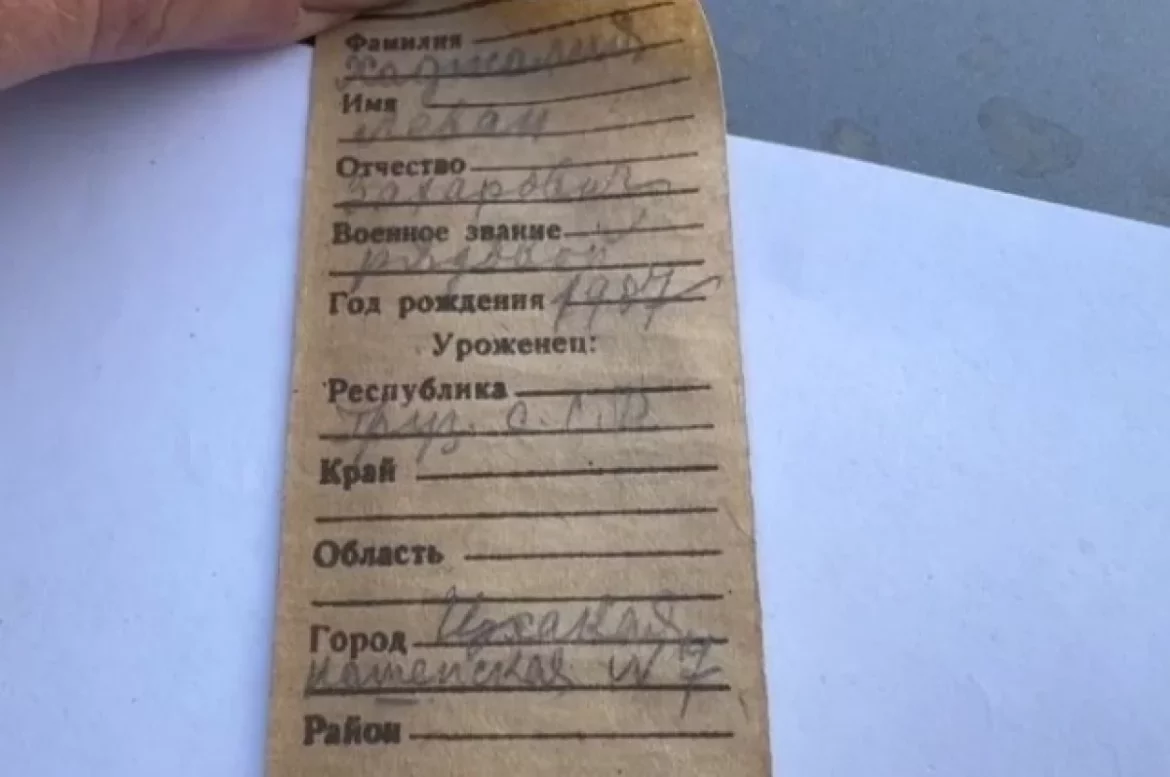 Фамилия
Имя
Леван
Отчество
Захарович
Военное звание
рядовой
Год рождения
Уроженец:
Республика
Груз. С.С.Р.
Край
Область
Город Цхакая
№ 7
Район